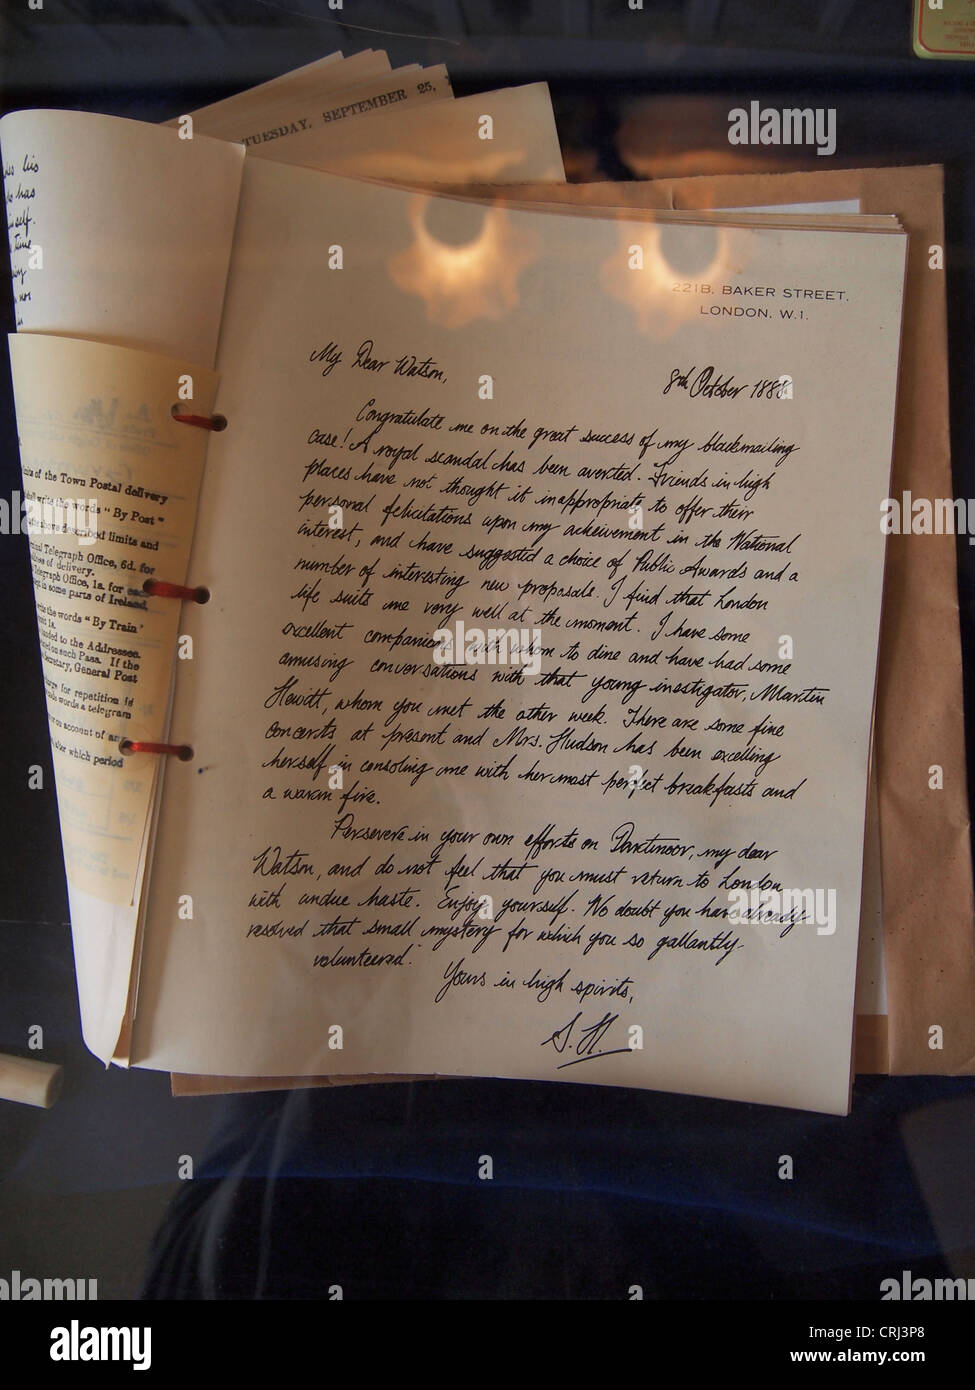 TUESDAY, SEPTEMBER 25,
221B, BAKER STREET,
LONDON, W.1.
My Dear Watson,
8th October 1888
Congratulate me on the great success of my blackmailing
case! A royal scandal has been averted. Friends in high
places have not thought it inappropriate to offer their
personal felicitations upon my acheivement in the National
interest, and have suggested a choice of Public Awards and a
number of interesting new proposals. I find that London
life suits me very well at the moment. I have some
excellent companions with whom to dine and have had some
amusing conversations with that young investigator, Martin
Hewitt, whom you met the other week. There are some fine
concerts at present and Mrs. Hudson has been excelling
herself in consoling me with her most perfect breakfasts and
a warm fire.
Persevere in your own efforts on Dartmoor, my dear
Watson, and do not feel that you must return to London
with undue haste. Enjoy yourself. No doubt you have already
resolved that small mystery for which you so gallantly
volunteered.
Yours in high spirits,
S. H.
his
has
self.
time
nor
limits of the Town Postal delivery
write the words "By Post"
above described limits and
Telegraph Office, 6d. for
of delivery.
Telegraph Office, 1s. for each
in some parts of Ireland,
the words "By Train"
to the Addressee.
on each Pass. If the
Secretary, General Post
for repetition is
words a telegram
on account of any
after which period
alamy
alamy
Image ID: CRJ3P8
www.alamy.com